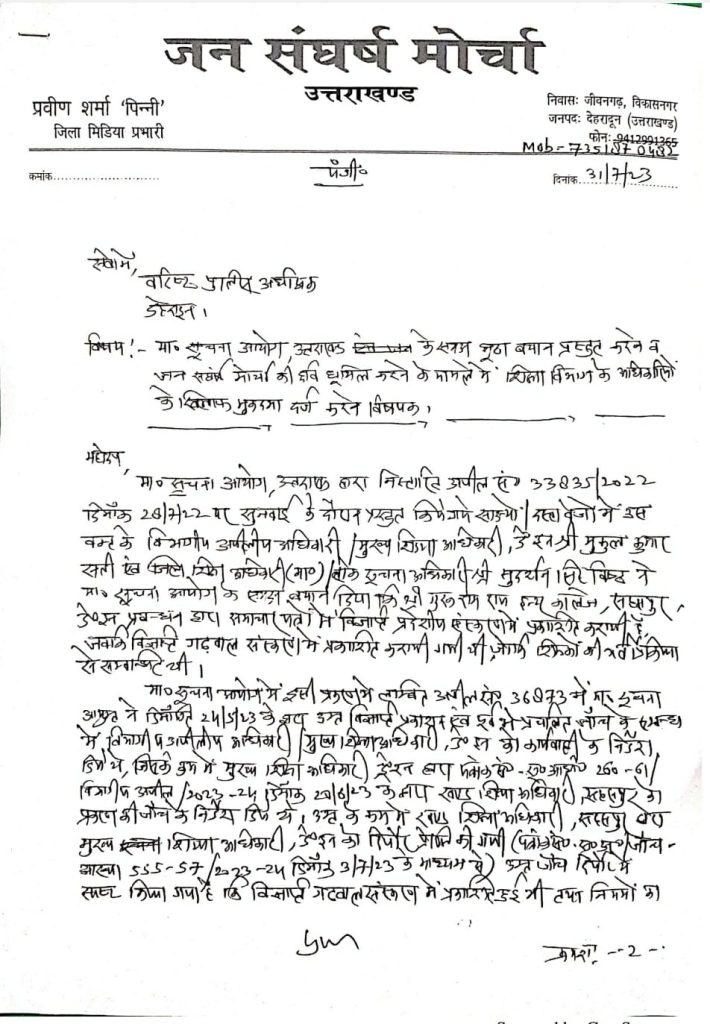 जन संघर्ष मोर्चा
उत्तराखण्ड
प्रवीण शर्मा 'पिन्नी'
जिला मिडिया प्रभारी
निवासः जीवनगढ़, विकासनगर
जनपदः देहरादून (उत्तराखण्ड)
फोनः 9412991365
Mob-
क्रमांक
पंजी०
दिनांक 31/7/23
सेवामें,
वरिष्ठ पुलिस अधीक्षक
देहरादून।
विषय:- मा० सूचना आयोग, उत्तराखण्ड के समक्ष झूठा बयान प्रस्तुत करने व
जन संघर्ष मोर्चा की छवि धूमिल करने के मामले में शिक्षा विभाग के अधिकारियों
के खिलाफ मुकदमा दर्ज करने विषयक।
महोदय,
मा० सूचना आयोग, उत्तराखण्ड द्वारा निस्तारित अपील सं० 33835/2022
दिनाँक 28/7/22 पर सुनवाई के दौरान प्रस्तुत किये गये साक्ष्यों/दस्तावेजों में इस
के विभागीय अपीलीय अधिकारी/मुख्य शिक्षा अधिकारी, दे०दून श्री मुकुल कुमार
सती एवं जिला शिक्षा अधिकारी (मा०)/लोक सूचना अधिकारी श्री सुदर्शन सिंह बिष्ट ने
मा० सूचना आयोग के समक्ष बयान दिया कि श्री गुरु राम राय इण्टर कालेज, सहसपुर,
दे०दून प्रबन्धन द्वारा समाचार पत्रों में विज्ञप्ति प्रदेशीय संस्करण में प्रकाशित करायी है,
जबकि विज्ञप्ति गढ़वाल संस्करण में प्रकाशित करायी गयी थी, जोकि शिक्षकों की भर्ती प्रक्रिया
से सम्बन्धित थी।
मा० सूचना आयोग में इसी प्रकरण में लम्बित अपील सं० 36873 में मा० सूचना
आयुक्त ने दिनाँक 24/5/23 के द्वारा उक्त विज्ञप्ति प्रकाशन एवं पूर्व में प्रचलित जाँच के सम्बन्ध
में विभागीय अपीलीय अधिकारी/मुख्य शिक्षा अधिकारी, दे०दून को कार्यवाही के निर्देश
दिये थे, जिसके क्रम में मुख्य शिक्षा अधिकारी दे०दून द्वारा पत्रांक सं०- सू०आ०अ० 260-61/
विभागीय अपील/2023-24 दिनाँक के द्वारा खण्ड शिक्षा अधिकारी, सहसपुर को
प्रकरण की जाँच के निर्देश दिये थे। उक्त के क्रम में खण्ड शिक्षा अधिकारी, सहसपुर द्वारा
मुख्य शिक्षा अधिकारी, दे०दून को रिपोर्ट प्रेषित की गयी (पत्रांक सं० /जाँच-
आख्या 555-57/2023-24 दिनाँक 3/7/23 के माध्यम से) उक्त जाँच रिपोर्ट में
स्पष्ट किया गया है कि विज्ञप्ति गढ़वाल संस्करण में प्रकाशित हुई थी तथा नियमों का
क्रमशः--2--